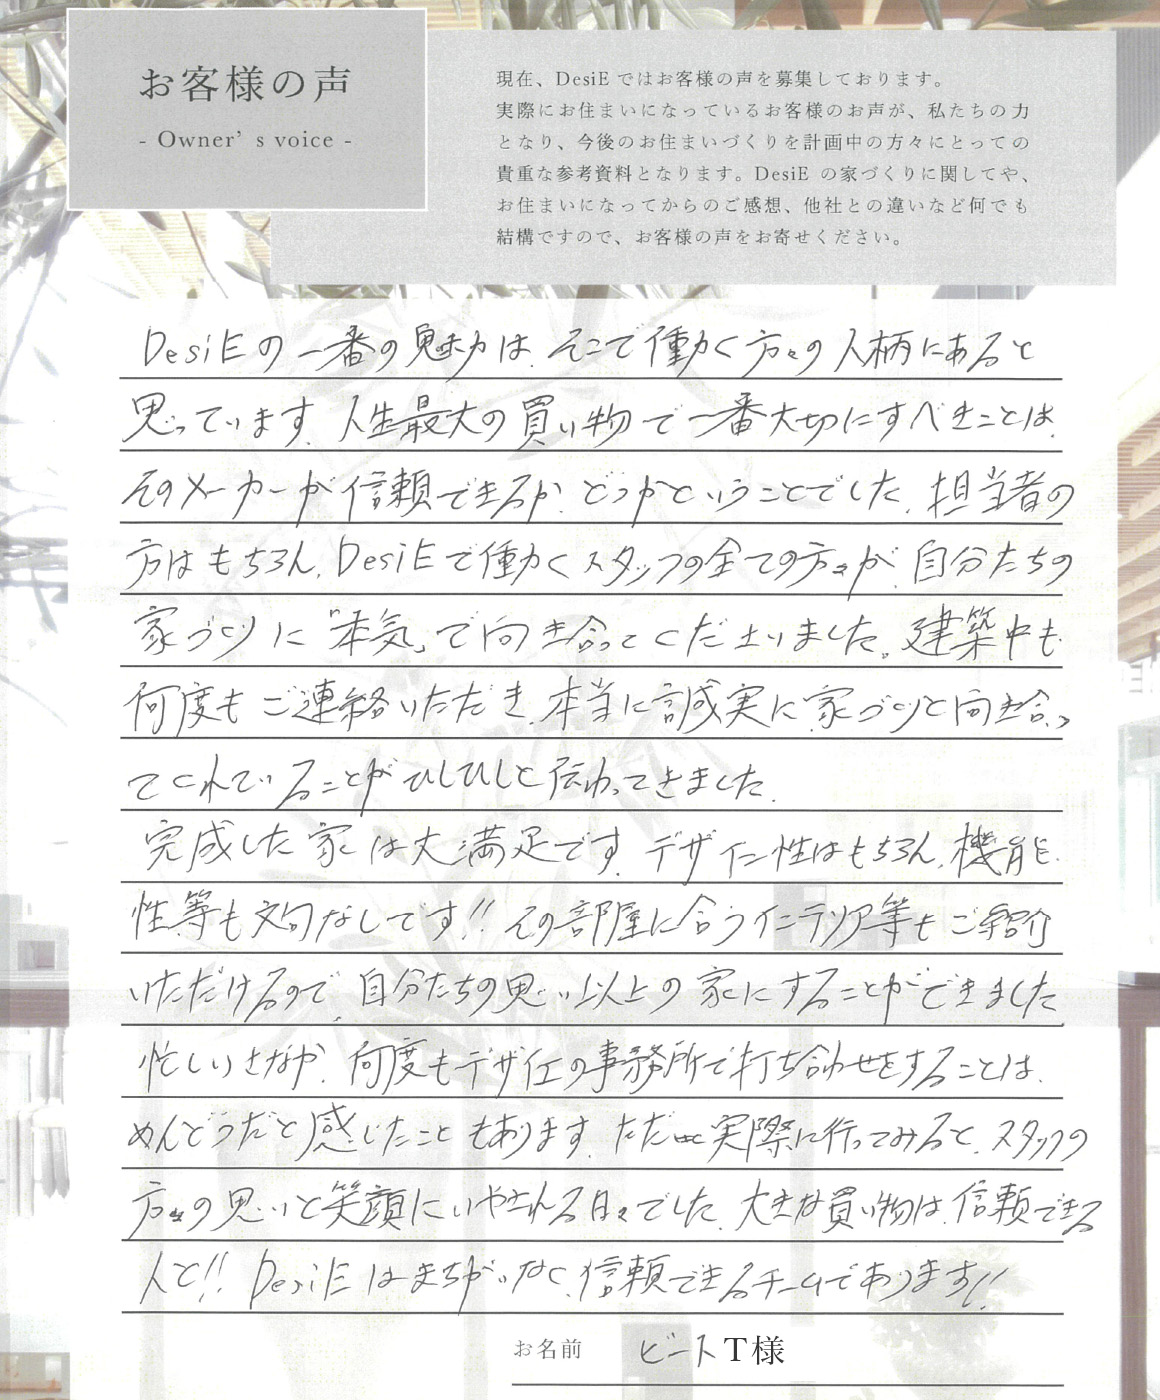 お客様の声
- Owner's voice -
現在、DesiE ではお客様の声を募集しております。
実際にお住まいになっているお客様のお声が、私たちの力
となり、今後のお住まいづくりを計画中の方々にとっての
貴重な参考資料となります。DesiE の家づくりに関してや、
お住まいになってからのご感想、他社との違いなど何でも
結構ですので、お客様の声をお寄せください。
DesiEの一番の魅力は、そこで働く方々の人柄にあると
思っています。人生最大の買い物で一番大切にすべきことは、
そのメーカーが信頼できるか、どうかということでした。担当者の
方はもちろん、DesiEで働くスタッフの全ての方々が、自分たちの
家づくりに『本気』で向き合ってくださいました。建築中も
何度もご連絡いただき、本当に誠実に家づくりと向き合っ
てくれていることがひしひしと伝わってきました。
完成した家は大満足です。デザイン性はもちろん、機能
性等も文句なしです!! その部屋に合うインテリア等もご紹介
いただけるので、自分たちの思い以上の家にすることができました。
忙しいさなか、何度もデザイエの事務所で打ち合わせをすることは、
めんどうだと感じたこともあります。ただ実際に行ってみると、スタッフの
方々の思いと笑顔にいやされる日々でした。大きな買い物は、信頼できる
人と!! DesiEはまちがいなく、信頼できるチームであります!!
お名前 ビートT様